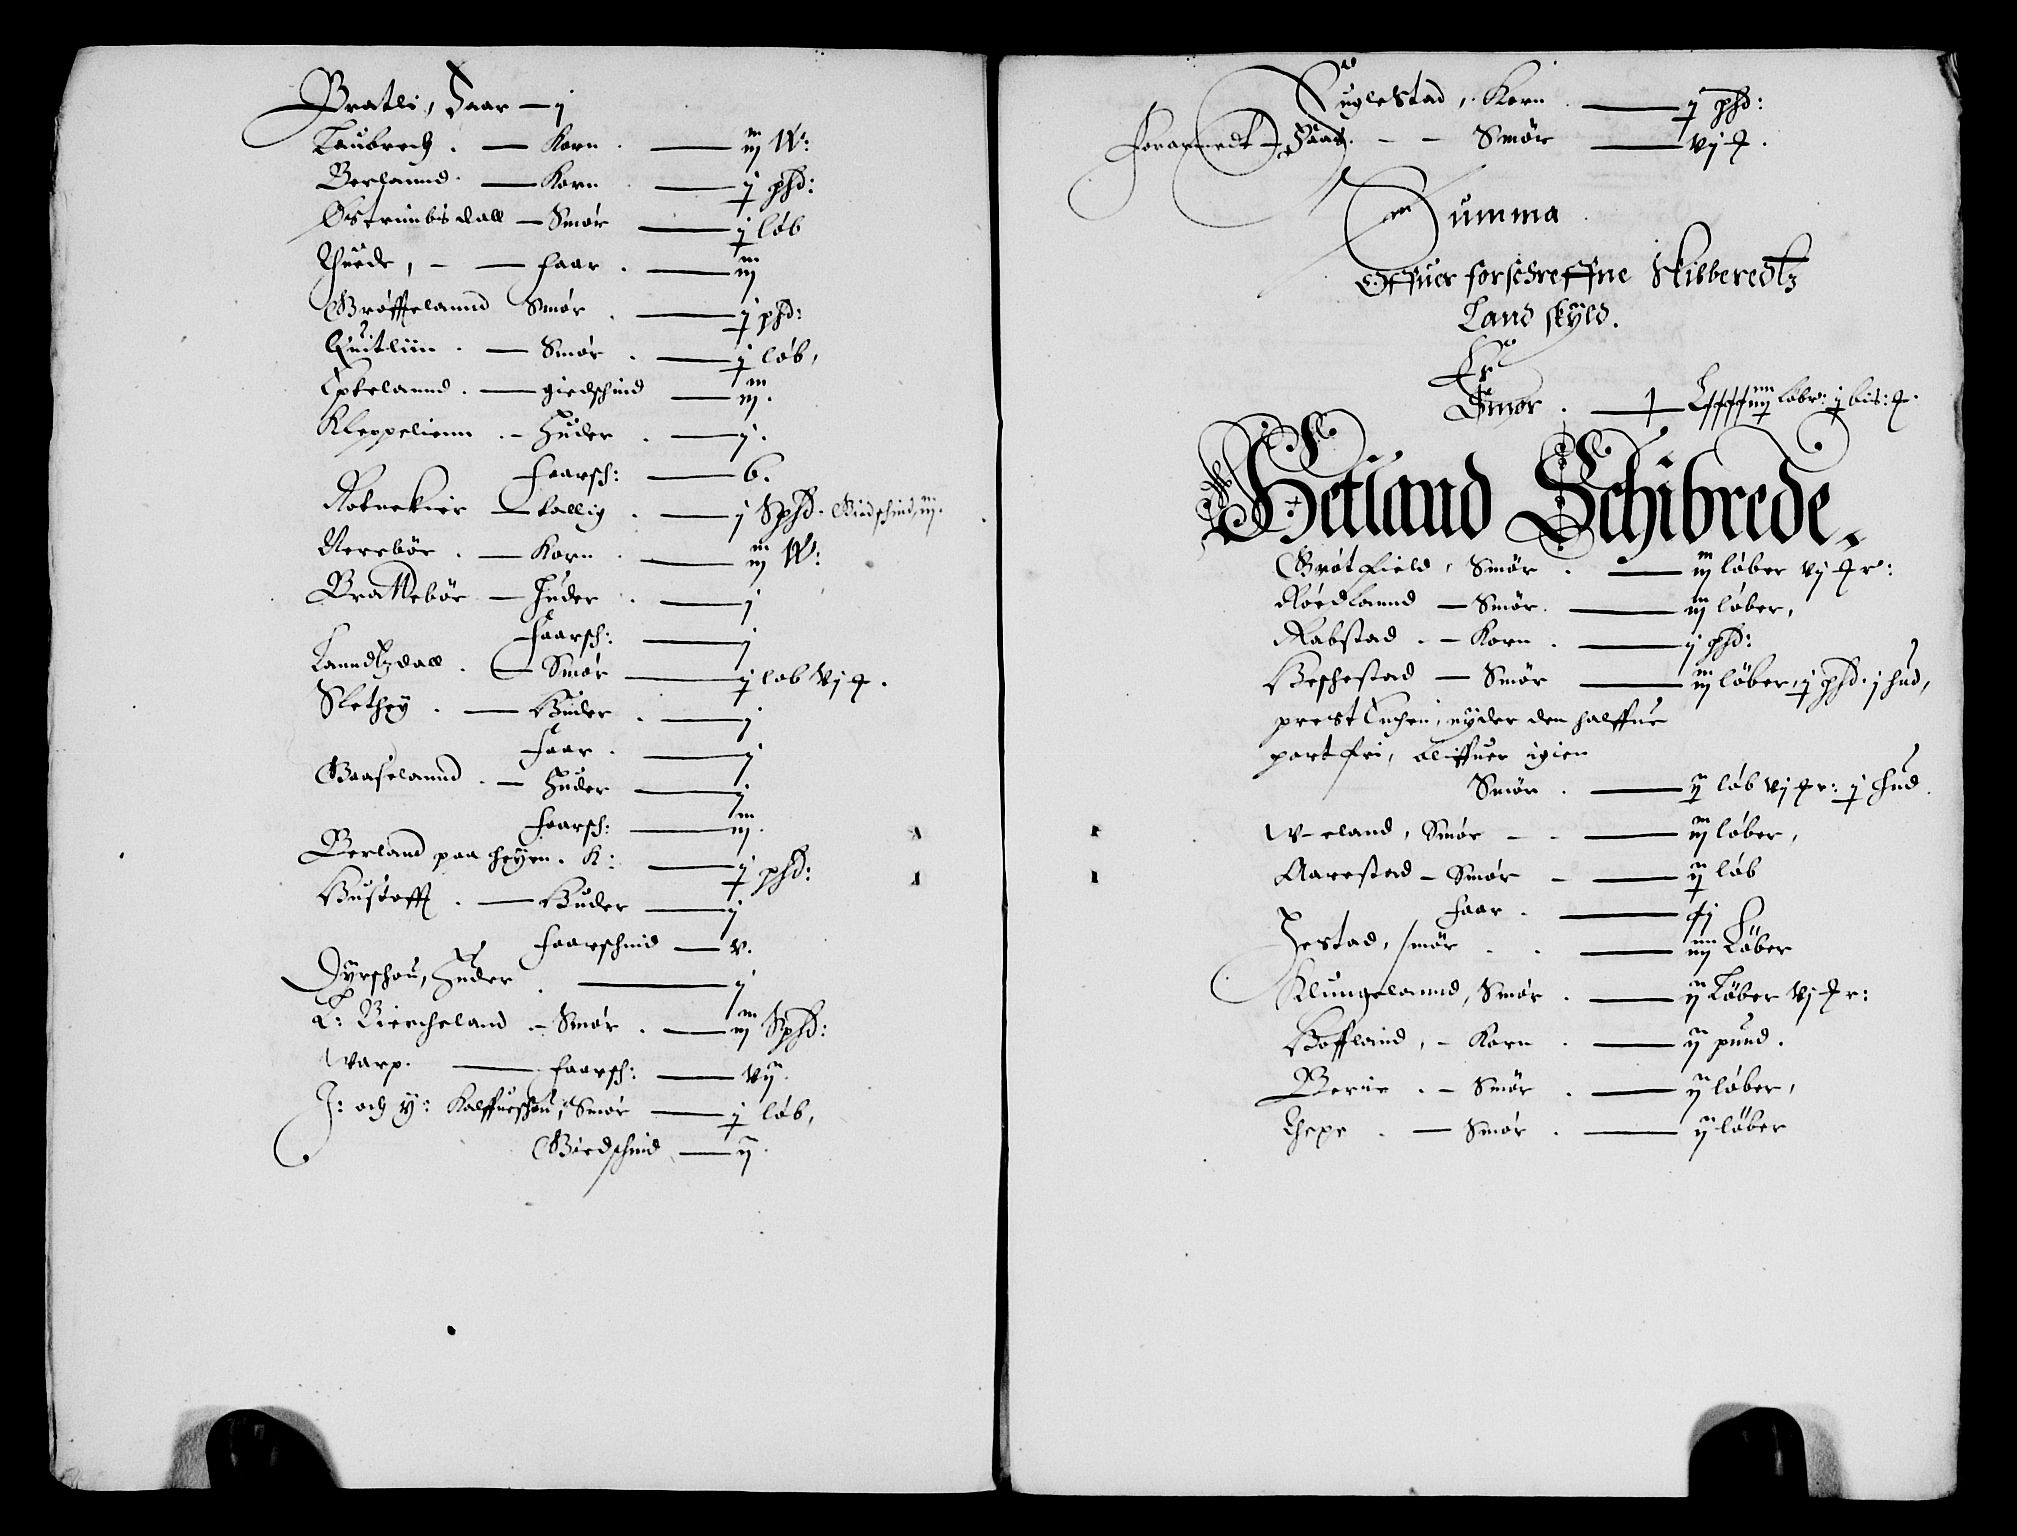 Bratli, Faar — j
Taubrech . — Korn . — iij W:
Berlannd . — Korn . — j phd:
Østrumbsdall — Smør — j løb
Thuede, - — faar . — iij
Grøffelannd Smør . — j phd:
Quitliin . — Smør . — j løb,
Epkelannd . — giedschind — iij .
Kleppelienn . - Huder . — j .
faarsch: — 6.
Rotnekier — kallig . — j Sphd . Giedschind, iij .
Nerrbør . — Korn . — iij W:
Brattebør — Huder . — j
faarsch: — j
Lanndtzdall . — Smør — j løb vj
Slethey . — Huder . — j
faar . — j
Gaaselannd . — Huder — j
faarsch: — iij .
Berland paa heyen . K: — j phd:
Hustofft . — Huder — j
faarschind — v.
Dyrschou, Huder . — j
L: Biercheland - Smør . — iij Sphd:
Warp . — faarsch: — vij .
J: och Y: Kalffueschou, Smør — j løb,
Giedschind — ij .
Fuglestad, Korn . — j phd:
Foraarnedt - Haar . - - Smør — vj .
Summa .
Offuer forschreffne Skibberedtz
Land skyld.
Er
Smør . — løbr: j bis:
Hetland Schibrede.
Grøtfield, Smør . — iij løber vj r:
Røedlannd — Smør . — iij løber,
Rabstad . - Korn . — j phd:
Heschestad — Smør — iij løber, j phd . j hud,
prest Enchen, nyder den halffue
part fri, bliffuer igien
Smør . — ij løb vj r: j hud .
W-eland, Smør - - — iij løber,
Aarestad - Smør - — ij løb
faar . — j
Jestad, smør . . — iiij Løber
Klungelannd, Smør . — ij Løber vj r:
Hoffland, - Korn . — ij pund .
Berie . - Smør . — ij løber,
Thepe . — Smør . — ij løber